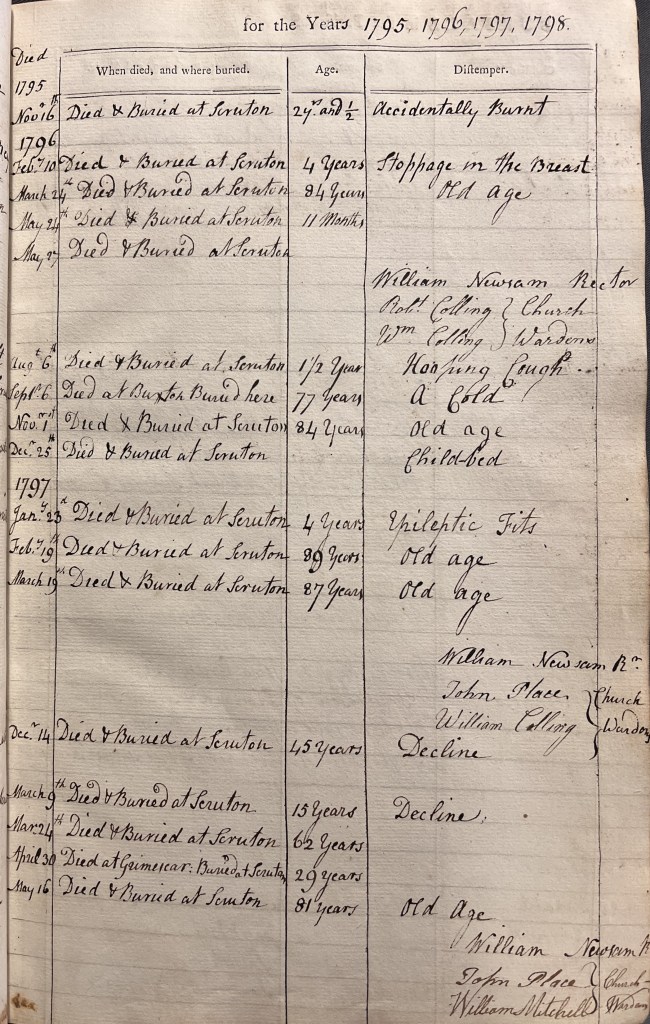 for the Years 1795, 1796, 1797, 1798.
Died When died, and where buried. Age. Distemper.
1795
Novr 16th Died & Buried at Scruton 2yrs and ½ Accidentally Burnt
1796
Feby 10 Died & Buried at Scruton 4 Years Stoppage in the Breast
March 24th Died & Buried at Scruton 84 Years Old age
May 24th Died & Buried at Scruton 11 Months
May 27 Died & Buried at Scruton
William Newsam Rector
Robt Colling } Church
Wm Colling } Wardens
Augt 6th Died & Buried at Scruton 1½ Year Hooping Cough
Septr 6 Died at Burton Buried here 77 Years A Cold
Novr 1st Died & Buried at Scruton 84 Years Old age
Decr 25th Died & Buried at Scruton Child-bed
1797
Jany 23d Died & Buried at Scruton 4 Years Epileptic Fits
Feby 19th Died & Buried at Scruton 89 Years Old age
March 19th Died & Buried at Scruton 87 Years Old age
William Newsam Rr
John Place } Church
William Colling } Wardens
Decr 14 Died & Buried at Scruton 45 Years Decline
March 9th Died & Buried at Scruton 15 Years Decline
Mar: 24th Died & Buried at Scruton 62 Years
April 30 Died at Grimescar: Buried at Scruton 29 Years
May 16 Died & Buried at Scruton 81 Years Old Age
William Newsam R
John Place } Church-
William Mitchell } Wardens